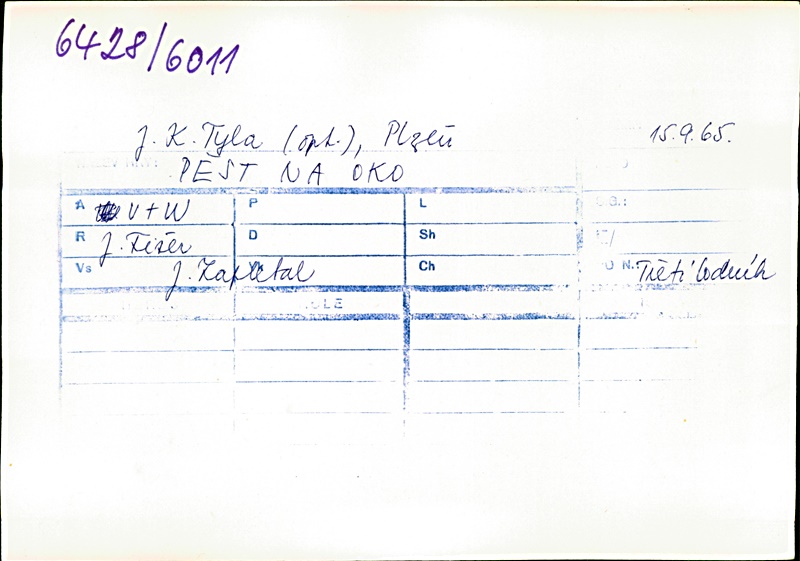 6428/6011
J. K. Tyla (opt.), Plzeň 15.9.65.
PĚST NA OKO
A V+W P L
R J. Fišer D Sh
Vs J. Zapletal Ch Třetí lodník